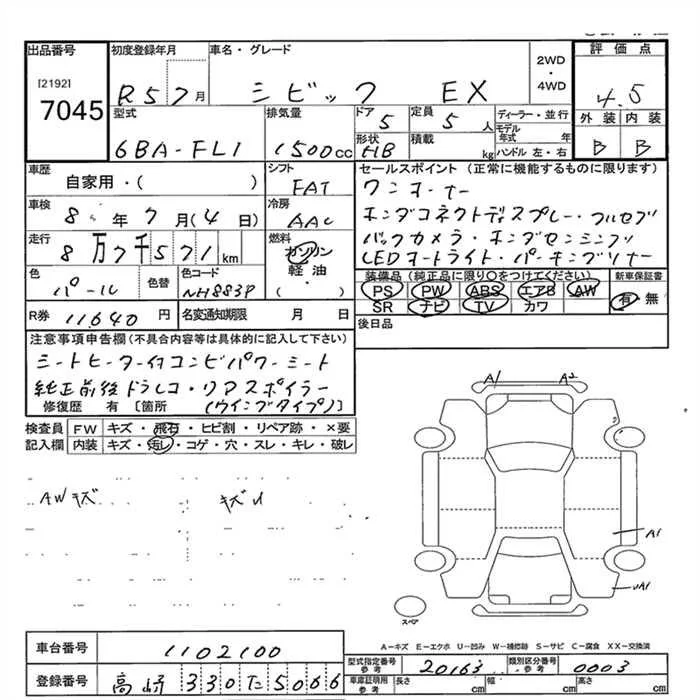 出品番号
[2192]
7045
初度登録年月
R5 7月
車名・グレード
シビック EX
2WD・4WD
評価点
4.5
外装 内装
B B
型式
6BA-FL1
排気量
1500cc
ドア
5
定員
5人
形状
HB
積載
kg
ディーラー・並行
モデル年式 年
ハンドル 左・右
車歴
自家用・( )
シフト
FAT
車検
8年7月(4日)
冷房
AAC
走行
8万7千571km
燃料
ガソリン
軽油
( )
色
パール
色替
色コード
NH883P
セールスポイント(正常に機能するものに限ります)
ワンオーナー
ホンダコネクトディスプレー・フルセグ
バックカメラ・ホンダセンシング
LEDオートライト・パーキングソナー
装備品(純正品に限り○をつけてください)
PS PW ABS エアB AW
SR ナビ TV カワ
新車保証書
有 無
R券 11640円
名変通知期限 月 日
後日品
注意事項申告欄(不具合内容等は具体的に記入して下さい)
シートヒーター付コンビパワーシート
純正前後ドラレコ・リアスポイラー
修復歴 有 [箇所 (ウイングタイプ)]
検査員記入欄
FW キズ・飛石・ヒビ割・リペア跡・×要
内装 キズ・汚レ・コゲ・穴・スレ・キレ・破レ
AWキズ
A1 A2
A1
UA1
スペア
A-キズ E-エクボ U-凹み W-補修跡 S-サビ C-腐食 XX-交換済
車台番号 1102100
登録番号 高崎 330 た 5066
型式指定番号 参考 20163
類別区分番号 参考 0003
車庫証明用 参考 長さ cm 幅 cm 高さ cm